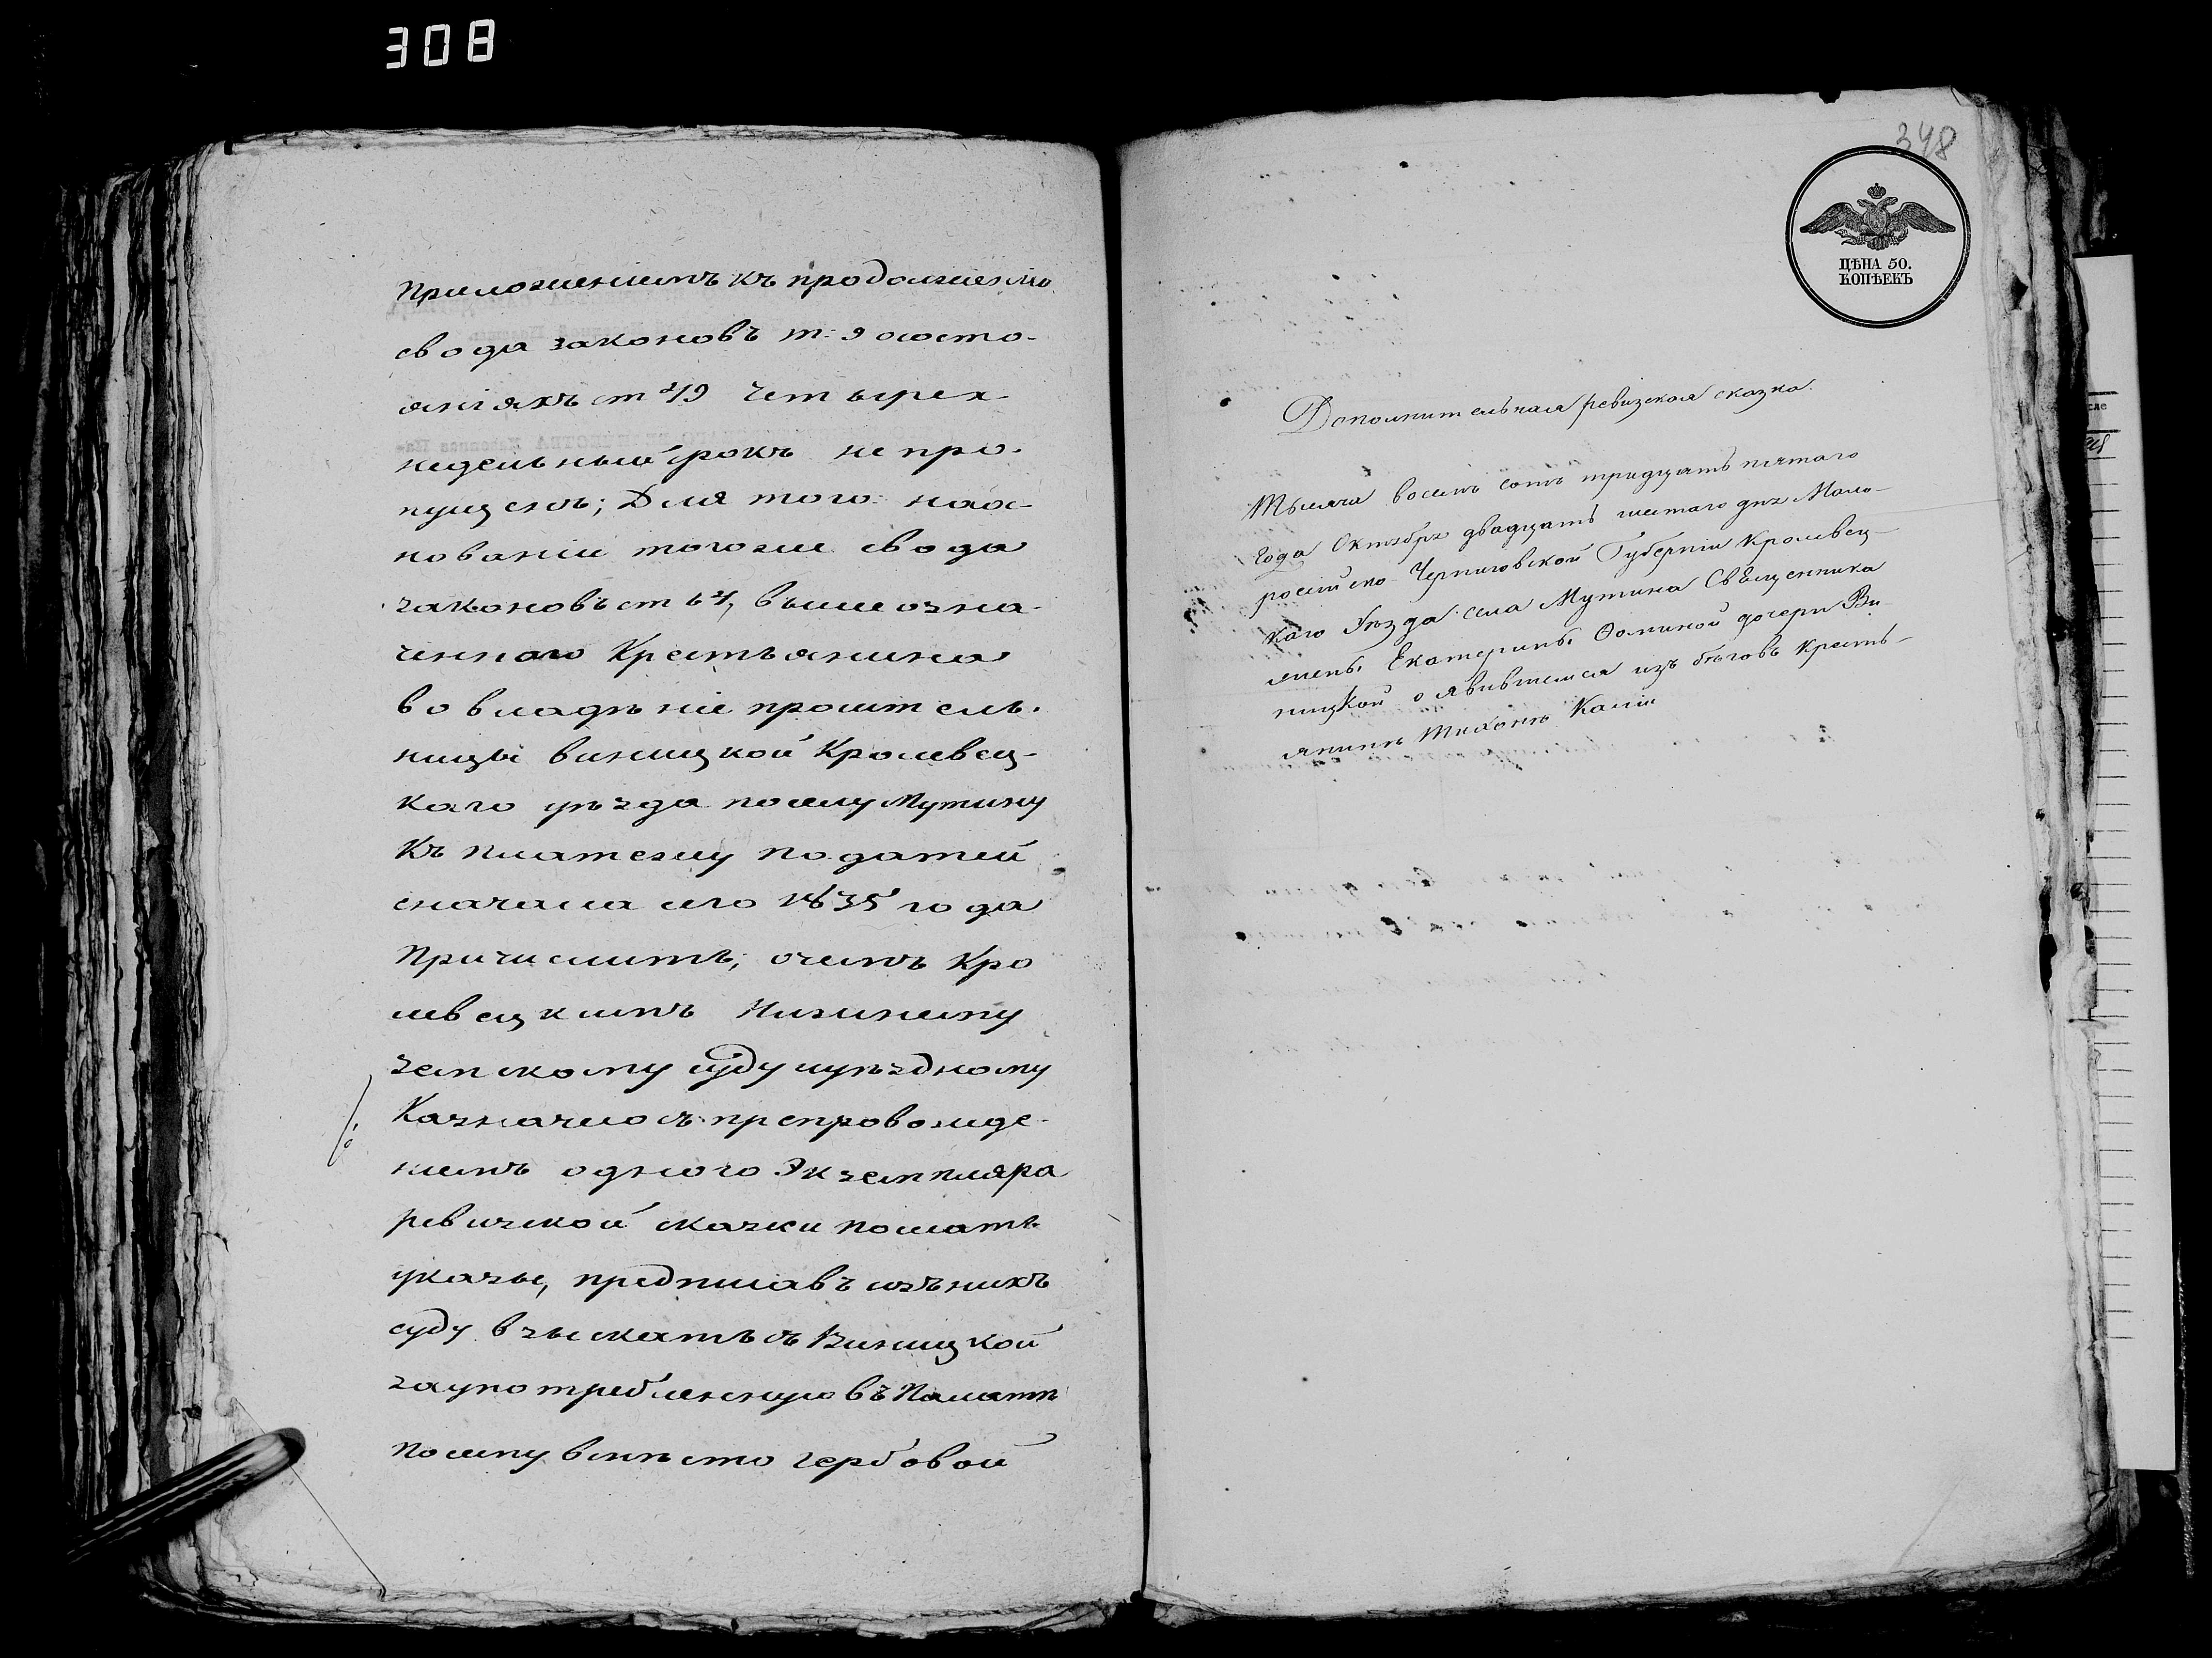 308
приложениемъ къ продолженію
свода законовъ т: 9 о состо-
яніяхъ ст 419 четырех-
недельный срокъ не про-
пущенъ; Для того: на ос-
нованіи того же свода
законовъ ст 64, выше озна-
ченнаго Крестьянина
во владѣніе проситель-
ницы Винницкой Кролевец-
каго уѣзда по селу Мутину
Къ платежу податей
сначала сего 1835 года
Причислить; о чемъ Кро
левецкимъ Нижнему
земскому суду и уѣздному
Казначею съ препровожде-
ніемъ одного Экземпляра
ревизской сказки послать
указы, предписавъ изъ нихъ
суду взыскать съ Винницкой
за употребленную въ Палатѣ
по сему вмѣсто гербовой
348
ЦѢНА 50.
КОПѢЕКЪ
Дополнительная ревизская сказка.
Тысяча восемь сотъ тридцать пятаго
года Октября двадцать шестаго дня Мало-
россійско Черниговской Губерніи Кролевец-
каго уѣзда села Мутина Священника
жены Екатерины Фоминой дочери Ви
ницкой о явившемся изъ бѣговъ кресть-
янинѣ Тихонѣ